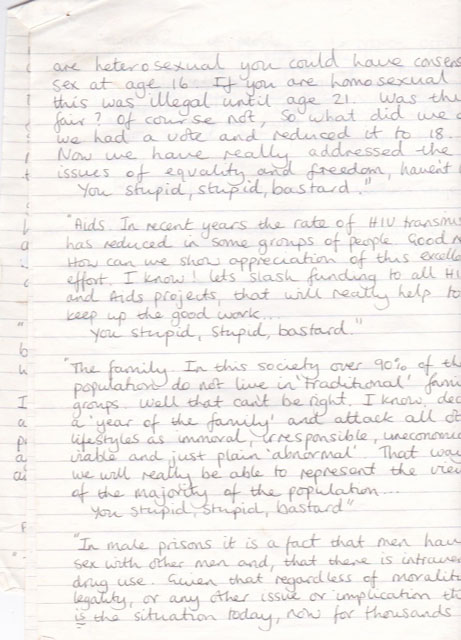 are heterosexual you could have consens
sex at age 16. If you are homosexual
this was illegal until age 21. Was the
fair? Of course not, so what did we
we had a vote and reduced it to 18.
Now we have really addressed the
issues of equality and freedom, haven't
You stupid, stupid, bastard."
"Aids. In recent years the rate of HIV transmis
has reduced in some groups of people. Good
How can we show appreciation of this excelle
effort. I know! lets slash funding to all HI
and Aids projects, that will really help to
keep up the good work...
You stupid, stupid, bastard."
"The family. In this society over 90% of th
population do not live in 'traditional' fami
groups. Well that can't be right. I know, dec
a 'year of the family' and attack all ot
lifestyles as immoral, irresponsible, uneconomic
viable and just plain 'abnormal'. That way
we will really be able to represent the view
of the majority of the population...
You stupid, stupid, bastard"
"In male prisons it is a fact that men hav
sex with other men and, that there is intraven
drug use. Given that regardless of moralit
legality, or any other issue or implication th
is the situation today, now for thousands